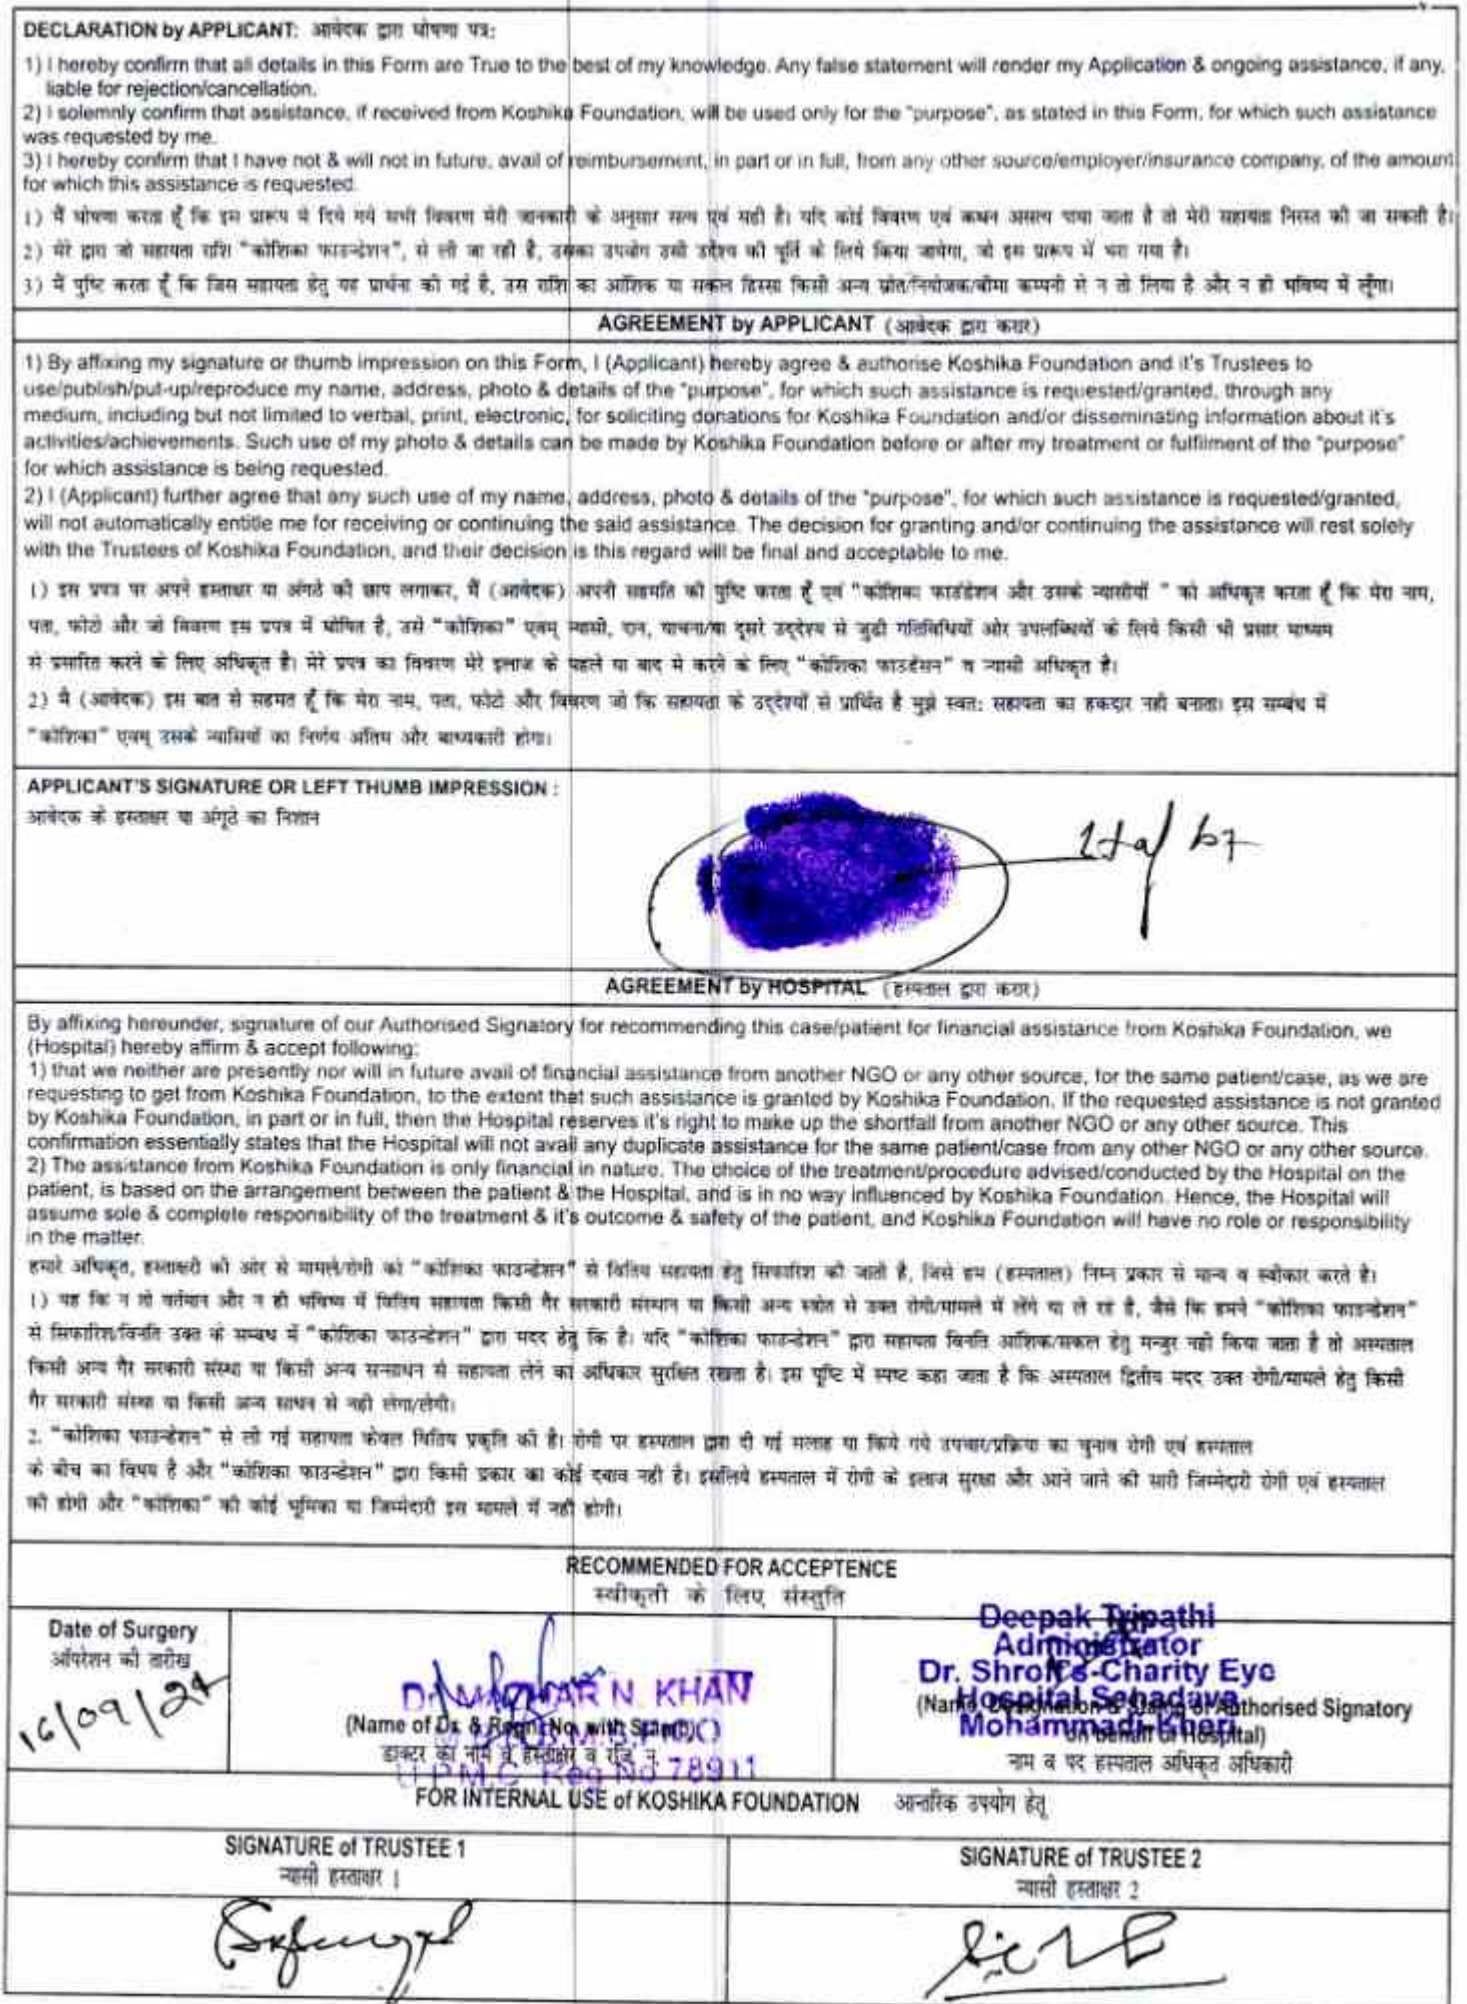 DECLARATION by APPLICANT: आवेदक द्वारा घोषणा पत्र:
1) I hereby confirm that all details in this Form are True to the best of my knowledge. Any false statement will render my Application & ongoing assistance, if any,
liable for rejection/cancellation.
2) I solemnly confirm that assistance, if received from Koshika Foundation, will be used only for the "purpose", as stated in this Form, for which such assistance
was requested by me.
3) I hereby confirm that I have not & will not in future, avail of reimbursement, in part or in full, from any other source/employer/insurance company, of the amount
for which this assistance is requested.
1) मैं घोषणा करता हूँ कि इस प्रारूप मे दिये गये सभी विवरण मेरी जानकारी के अनुसार सत्य एवं सही है। यदि कोई विवरण एवं कथन असत्य पाया जाता है तो मेरी सहायता निरस्त की जा सकती है।
2) मेरे द्वारा जो सहायता राशि "कोशिका फाउन्डेशन", से ली जा रही है, उसका उपयोग उसी उद्देश्य की पूर्ति के लिये किया जायेगा, जो इस प्रारूप में भरा गया है।
3) मैं पुष्टि करता हूँ कि जिस सहायता हेतु यह प्रार्थना की गई है, उस राशि का आंशिक या सकल हिस्सा किसी अन्य स्रोत/नियोजक/बीमा कम्पनी से न तो लिया है और न ही भविष्य में लूँगा।
AGREEMENT by APPLICANT (आवेदक द्वारा करार)
1) By affixing my signature or thumb impression on this Form, I (Applicant) hereby agree & authorise Koshika Foundation and it's Trustees to
use/publish/put-up/reproduce my name, address, photo & details of the "purpose", for which such assistance is requested/granted, through any
medium, including but not limited to verbal, print, electronic, for soliciting donations for Koshika Foundation and/or disseminating information about it's
activities/achievements. Such use of my photo & details can be made by Koshika Foundation before or after my treatment or fulfilment of the "purpose"
for which assistance is being requested.
2) I (Applicant) further agree that any such use of my name, address, photo & details of the "purpose", for which such assistance is requested/granted,
will not automatically entitle me for receiving or continuing the said assistance. The decision for granting and/or continuing the assistance will rest solely
with the Trustees of Koshika Foundation, and their decision is this regard will be final and acceptable to me.
1) इस प्रपत्र पर अपने हस्ताक्षर या अंगठे की छाप लगाकर, मैं (आवेदक) अपनी सहमति की पुष्टि करता हूँ एवं "कोशिका फाउंडेशन और उसके न्यासीयों " को अधिकृत करता हूँ कि मेरा नाम,
पता, फोटो और जो विवरण इस प्रपत्र में घोषित है, उसे "कोशिका" एवम् न्यासी, दान, याचना/या दूसरे उद्देश्य से जुडी गतिविधियों ओर उपलब्धियों के लिये किसी भी प्रसार माध्यम
से प्रसारित करने के लिए अधिकृत है। मेरे प्रपत्र का विवरण मेरे इलाज के पहले या बाद मे करने के लिए "कोशिका फाउंडेसन" व न्यासी अधिकृत है।
2) मै (आवेदक) इस बात से सहमत हूँ कि मेरा नाम, पता, फोटो और विवरण जो कि सहायता के उद्देश्यों से प्रार्थित है मुझे स्वत: सहायता का हकदार नही बनाता। इस सम्बंध में
"कोशिका" एवम् उसके न्यासियों का निर्णय अंतिम और बाध्यकारी होगा।
APPLICANT'S SIGNATURE OR LEFT THUMB IMPRESSION :
आवेदक के हस्ताक्षर या अंगूठे का निशान
AGREEMENT by HOSPITAL (हस्पताल द्वारा करार)
By affixing hereunder, signature of our Authorised Signatory for recommending this case/patient for financial assistance from Koshika Foundation, we
(Hospital) hereby affirm & accept following:
1) that we neither are presently nor will in future avail of financial assistance from another NGO or any other source, for the same patient/case, as we are
requesting to get from Koshika Foundation, to the extent that such assistance is granted by Koshika Foundation. If the requested assistance is not granted
by Koshika Foundation, in part or in full, then the Hospital reserves it's right to make up the shortfall from another NGO or any other source. This
confirmation essentially states that the Hospital will not avail any duplicate assistance for the same patient/case from any other NGO or any other source.
2) The assistance from Koshika Foundation is only financial in nature. The choice of the treatment/procedure advised/conducted by the Hospital on the
patient, is based on the arrangement between the patient & the Hospital, and is in no way influenced by Koshika Foundation. Hence, the Hospital will
assume sole & complete responsibility of the treatment & it's outcome & safety of the patient, and Koshika Foundation will have no role or responsibility
in the matter.
हमारे अधिकृत, हस्ताक्षरी की ओर से मामले/रोगी को "कोशिका फाउन्डेशन" से वितिय सहायता हेतु सिफारिश की जाती है, जिसे हम (हस्पताल) निम्न प्रकार से मान्य व स्वीकार करते है।
1) यह कि न तो वर्तमान और न ही भविष्य में वितिय सहायता किसी गैर सरकारी संस्थान या किसी अन्य स्त्रोत से उक्त रोगी/मामले में लेंगे या ले रहे है, जैसे कि हमने "कोशिका फाउन्डेशन"
से सिफारिश/विनति उक्त के सम्बध में "कोशिका फाउन्डेशन" द्वारा मदद हेतु कि है। यदि "कोशिका फाउन्डेशन" द्वारा सहायता विनति आंशिक/सकल हेतु मन्जुर नही किया जाता है तो अस्पताल
किसी अन्य गैर सरकारी संस्था या किसी अन्य सन्साधन से सहायता लेने का अधिकार सुरक्षित रखता है। इस पूष्टि में स्पष्ट कहा जाता है कि अस्पताल द्वितीय मदद उक्त रोगी/मामले हेतु किसी
गैर सरकारी संस्था या किसी अन्य साधन से नही लेगा/लेगी।
2. "कोशिका फाउन्डेशन" से ली गई सहायता केवल वितिय प्रकृति की है। रोगी पर हस्पताल द्वारा दी गई सलाह या किये गये उपचार/प्रक्रिया का चुनाव रोगी एवं हस्पताल
के बीच का विषय है और "कोशिका फाउन्डेशन" द्वारा किसी प्रकार का कोई दबाव नही है। इसलिये हस्पताल में रोगी के इलाज सुरक्षा और आने जाने की सारी जिम्मेदारी रोगी एवं हस्पताल
की होगी और "कोशिका" की कोई भूमिका या जिम्मेदारी इस मामले में नही होगी।
RECOMMENDED FOR ACCEPTENCE
स्वीकृती के लिए संस्तुति
Date of Surgery
ऑपरेशन की तारीख
16/09/24
N. KHAN
(Name of Dr. & Regn. No. with Stamp)
डाक्टर का नाम व हस्ताक्षर व रजि. न.
U.P.M.C. Reg No 78911
Deepak Tripathi
Administrator
Dr. Shroff's Charity Eye
Hospital Sehadava
Mohammadi-Kheri
(Name, Designation & Stamp of Authorised Signatory
on behalf of Hospital)
नाम व पद हस्पताल अधिकृत अधिकारी
FOR INTERNAL USE of KOSHIKA FOUNDATION आन्तरिक उपयोग हेतू
SIGNATURE of TRUSTEE 1
न्यासी हस्ताक्षर 1
SIGNATURE of TRUSTEE 2
न्यासी हस्ताक्षर 2